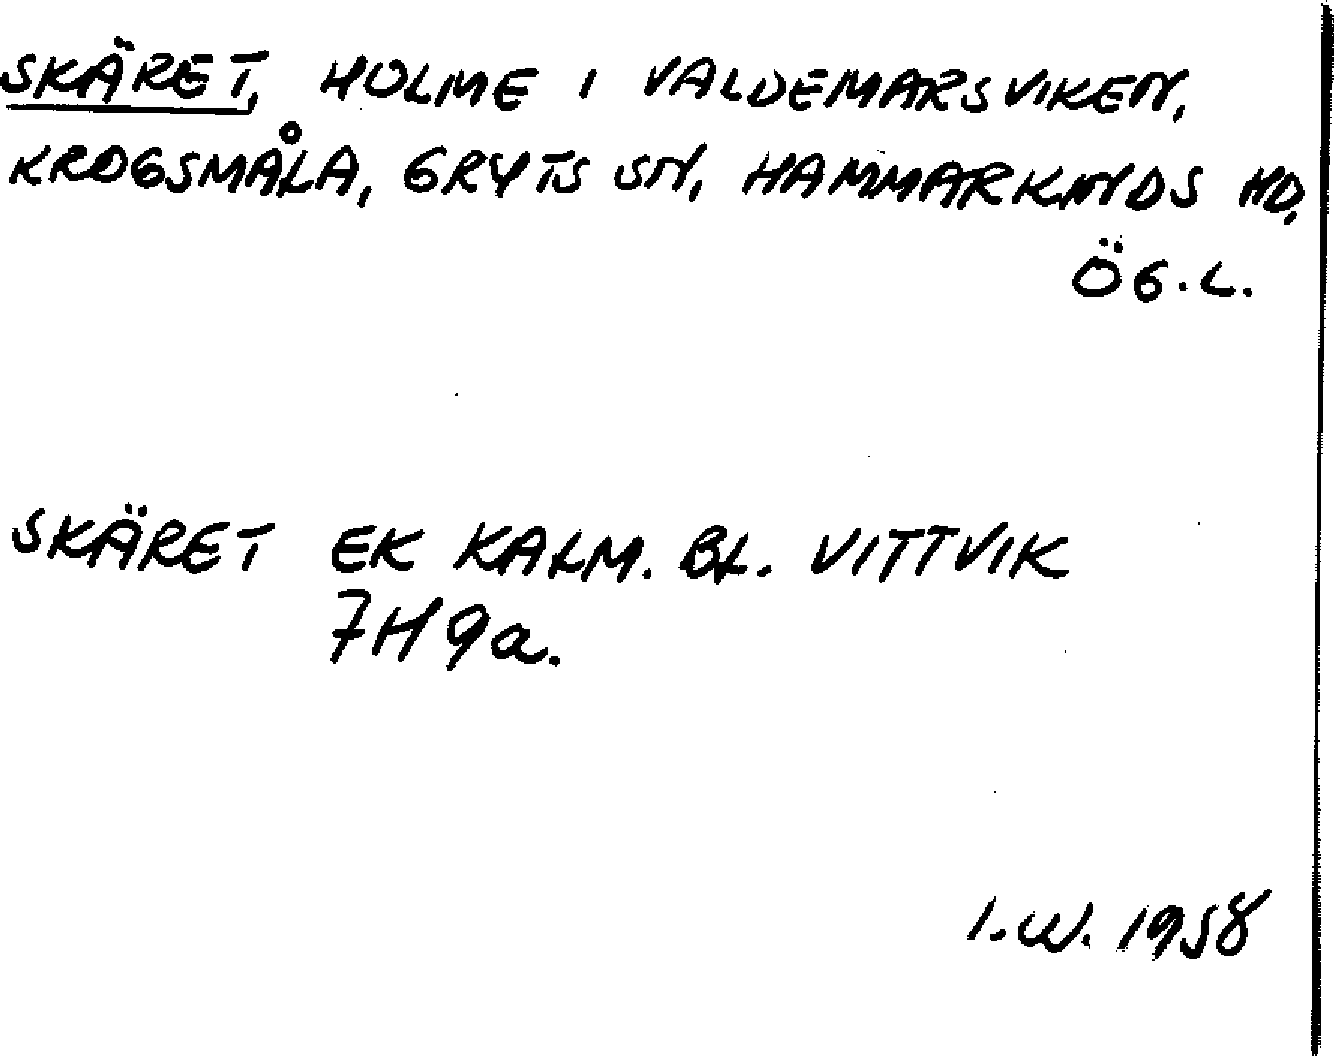 SKÄRET, HOLME I VALDEMARSVIKEN,
KROGSMÅLA, GRYTS SN, HAMMARKINDS HD,
ÖG.L.
SKÄRET EK KALM. BL. VITTVIK
7H9a.
I.W. 1958